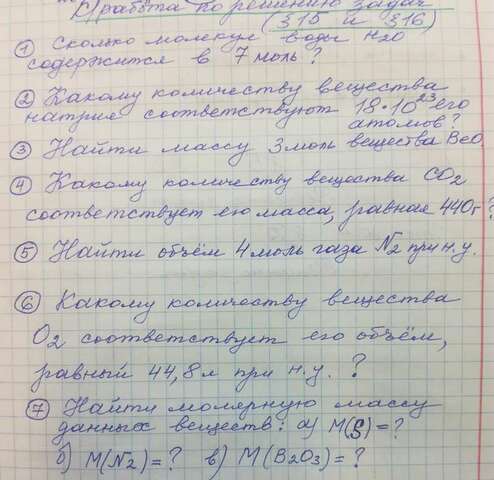 Р/работа по решению задач
(§15 и §16)
① Сколько молекул воды H2O
содержится в 7 моль?
② Какому количеству вещества
натрия соответствуют 18·10²³ его
атомов?
③ Найти массу 3 моль вещества BeO
④ Какому количеству вещества CO2
соответствует его масса, равная 440г?
⑤ Найти объём 4 моль газа N2 при н.у.
⑥ Какому количеству вещества
O2 соответствует его объём,
равный 44,8л при н.у. ?
⑦ Найти молярную массу
данных веществ: а) M(S)=?
б) M(N2)=? в) M(B2O3)=?